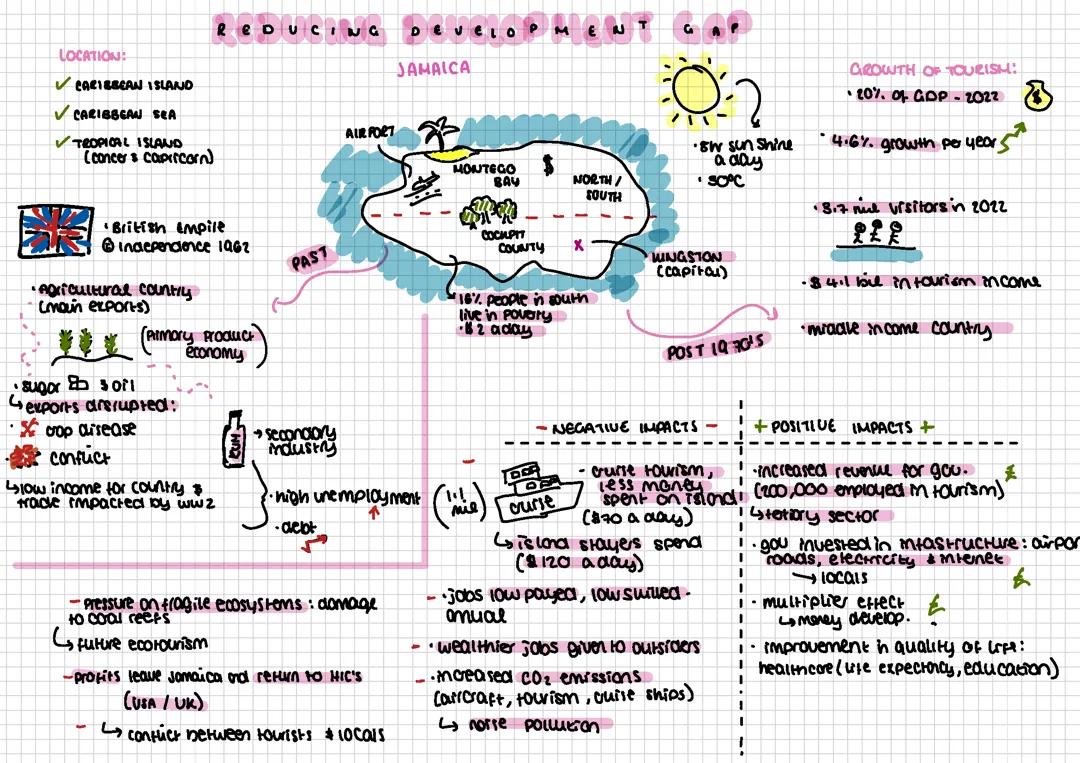 REDUCING DEVELOPMENT GAP
JAMAICA
LOCATION:
✓ CARIBBEAN ISLAND
✓ CARIBBEAN SEA
✓ TROPICAL ISLAND
(cancer & capricorn)
• British Empire
@ independence 1962
PAST
• Agricultural country
(main exports)
(primary product
economy)
• sugar & oil
↳ exports disrupted:
• crop disease
• conflict
↳ low income for country &
trade impacted by ww2
RUM
→ secondary
industry
• high unemployment
• debt
AIRPORT
MONTEGO
BAY
$
NORTH /
SOUTH
COCKPIT
COUNTY
x
KINGSTON
(capital)
16% people in south
live in poverty
• $2 a day
• 8hr sunshine
a day
• 30°C
POST 1970'S
GROWTH OF TOURISM:
• 20% OF GDP - 2022
$
• 4.6% growth per year
• 3.7 mil visitors in 2022
• $4.1 bil in tourism income
• middle income country
- NEGATIVE IMPACTS -
(1.1
mil)
cruise
- cruise tourism,
less money
spent on island
($70 a day)
↳ island stayers spend
($120 a day)
- • jobs low payed, low skilled -
annual
- • wealthier jobs given to outsiders
- • increased CO2 emissions
(aircraft, tourism, cruise ships)
↳ noise pollution
- pressure on fragile ecosystems: damage
to coral reefs
↳ future ecotourism
- profits leave Jamaica and return to HIC's
(USA / UK)
- ↳ conflict between tourists & locals
+ POSITIVE IMPACTS +
• increased revenue for gov.
£
(200,000 employed in tourism)
↳ tertiary sector
• gov invested in infastructure: airpor
roads, electricity & internet
→ locals
£
• multiplier effect
£
↳ money develop.
• improvement in quality of life:
healthcare (life expectancy, education)